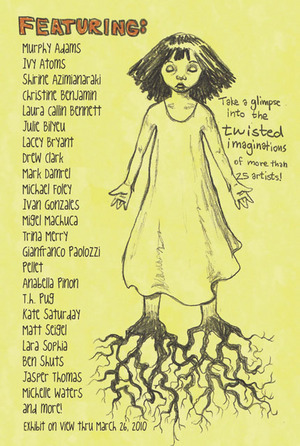 FEATURING:
Murphy Adams
Ivy Atoms
Shirine Azimianaraki
Christine Benjamin
Laura Callin Bennett
Julie Bilyeu
Lacey Bryant
Drew Clark
Mark Damrel
Michael Foley
Ivan Gonzales
Migel Machuca
Trina Merry
Gianfranco Paolozzi
Pellet
Anabella Pinon
T.h. Pug
Kate Saturday
Matt Seigel
Lara Sophia
Ben Shuts
Jasper Thomas
Michelle Waters
and more!
Exhibit on view thru March 26, 2010
Take a glimpse
into the
twisted
imaginations
of more than
25 artists!